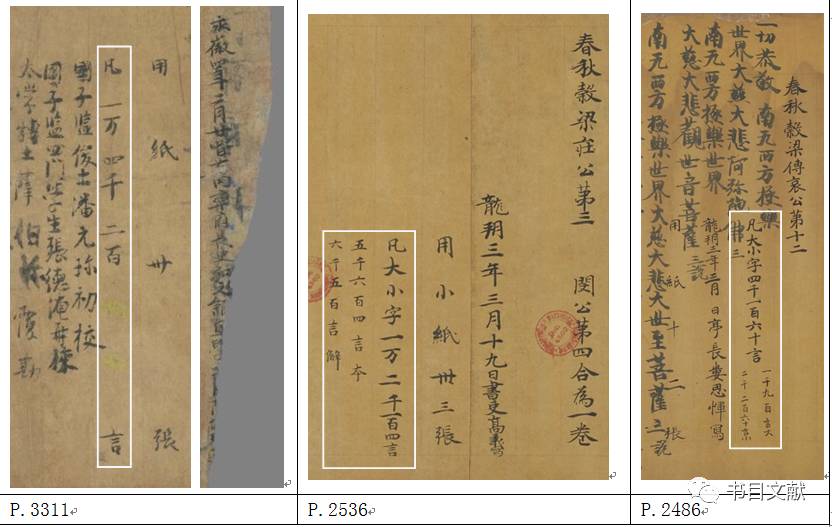 用紙卅張
凡一万四千二百言
國子監俊士潘元珎初校
國子監四門学生張德
太學博士薛伯覆勘
春秋穀梁莊公第三 閔公第四合為一卷
龍朔三年三月十九日書吏高義寫
用小紙卅三張
凡大小字一万二千一百四言
五千六百四言本
六千五百言解
春秋穀梁傳哀公第十二
一切恭敬 南无西方極樂
世界大慈大悲阿弥陁佛三
南无西方極樂世界
大慈大悲觀世音菩薩三說
南无西方極樂世界大慈大悲大世至菩薩三說
凡大小字四千一百六十言
一千九百言大
二千二百六十言小
龍朔三年三月 日亭長婁思惲寫
用紙十二張
书目文献
P.3311
P.2536
P.2486